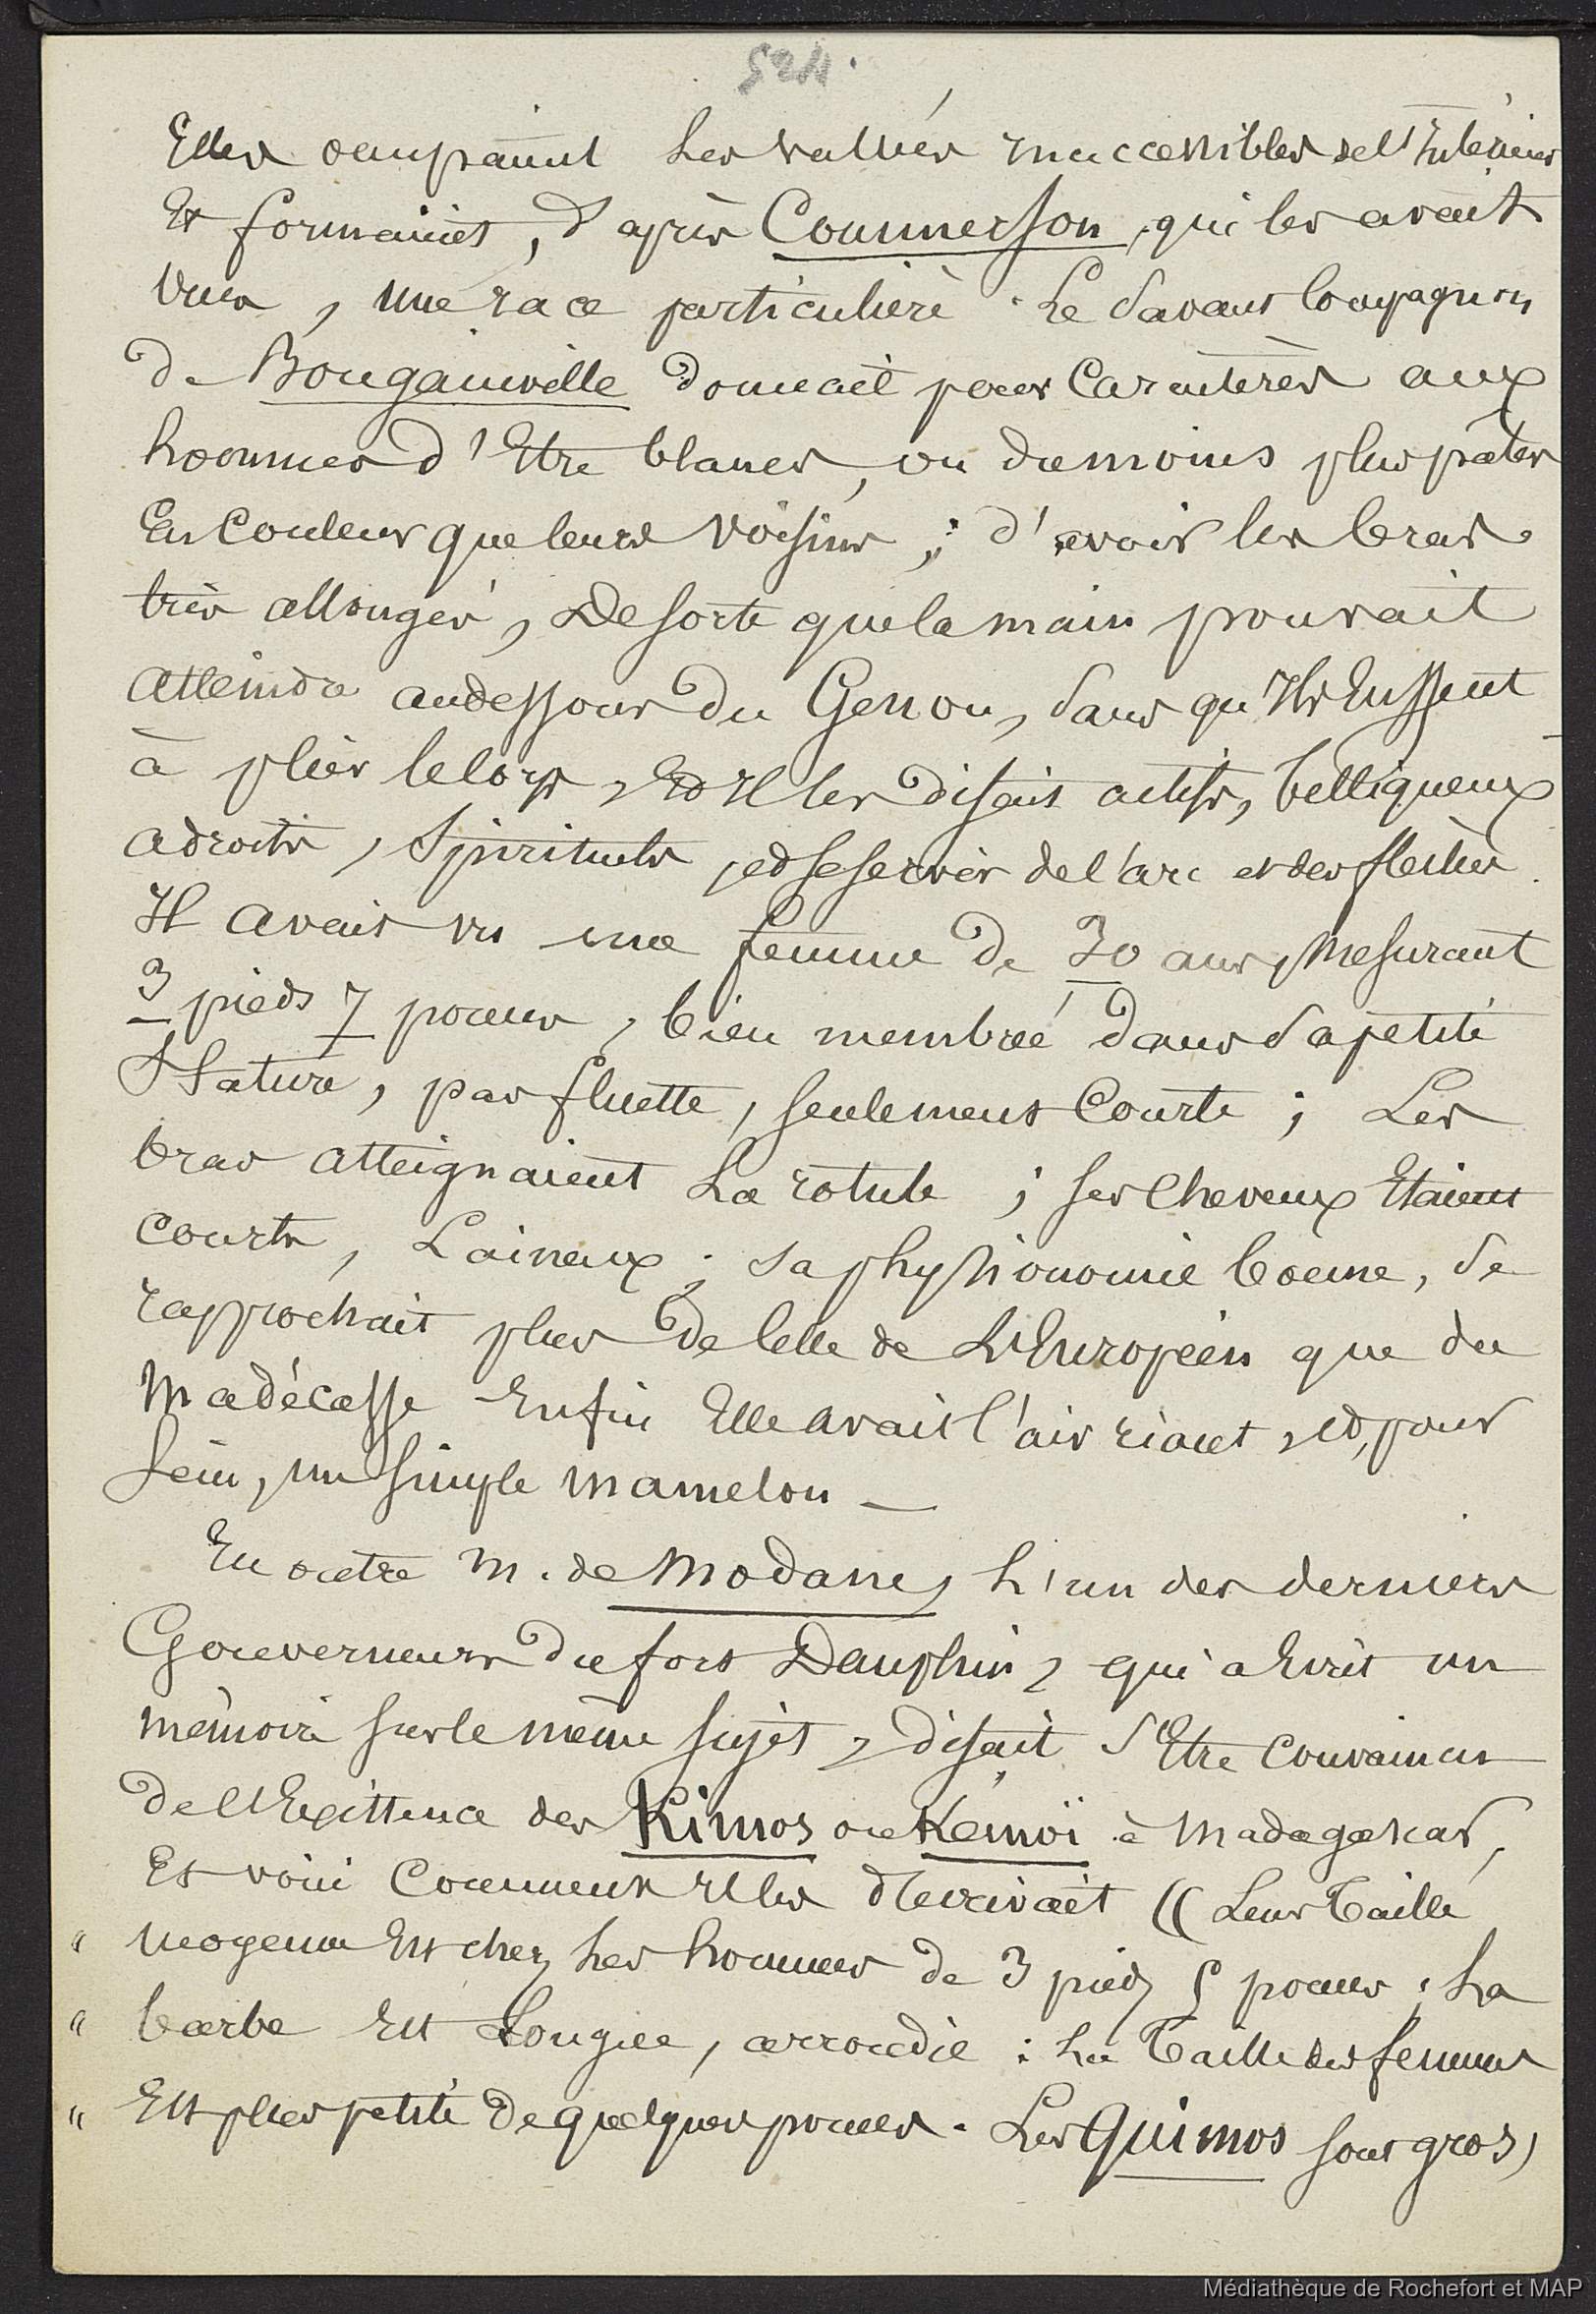 524.
Elles occupaient les vallées inaccessibles de l'Intérieur
Et formaient, d'après Commerson, qui les avait
vues, une race particulière. Le savant Compagnon
de Bougainville donnait pour Caractères aux
hommes d'Etre blancs, ou du moins plus pâles
En Couleur que leurs voisins ; d'avoir les bras
très allongés, De sorte que la main pouvait
atteindre au dessous du Genou, sans qu'Ils Eussent
à plier le Corps, Et Il les disait actifs, belliqueux
adroits, Spirituels, et se servir de l'arc et des flèches.
Il avait vu une femme de 30 ans, mesurant
3 pieds 7 pouces, bien membrée dans sa petite
Stature, pas fluette, seulement Courte ; Les
bras atteignaient La rotule ; ses Cheveux Etaient
courts, Laineux ; sa physionomie bonne, se
rapprochait plus de Celle de L'Européen que du
Madécasse Enfin Elle avait l'air riant, et, pour
sein, un simple mamelon —
En outre M. de Modane, L'un des derniers
Gouverneurs du fort Dauphin, qui a Ecrit un
mémoire sur le même sujet, disait s'Etre Convaincu
De l'Existence des Kimos ou Kemoï à Madagascar,
Et voici Comment Il les décrivait (( Leur Taille
" moyenne Est chez Les hommes de 3 pieds 5 pouces ; La
" barbe Est Longue, arrondie : La Taille des femmes
" Est plus petite De quelques pouces. Les Quimos sont gros,
Médiathèque de Rochefort et MAP